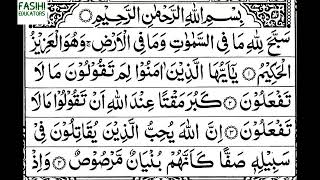 FASIHI
EDUCATORS
بِسْمِ اللّٰهِ الرَّحْمٰنِ الرَّحِیْمِ
سَبَّحَ لِلّٰهِ مَا فِی السَّمٰوٰتِ وَمَا فِی الْاَرْضِ ۚ وَهُوَ الْعَزِیْزُ
الْحَكِیْمُ ۝۱ یٰۤاَیُّهَا الَّذِیْنَ اٰمَنُوْا لِمَ تَقُوْلُوْنَ مَا لَا
تَفْعَلُوْنَ ۝۲ كَبُرَ مَقْتًا عِنْدَ اللّٰهِ اَنْ تَقُوْلُوْا مَا لَا
تَفْعَلُوْنَ ۝۳ اِنَّ اللّٰهَ یُحِبُّ الَّذِیْنَ یُقَاتِلُوْنَ فِیْ
سَبِیْلِهٖ صَفًّا كَاَنَّهُمْ بُنْیَانٌ مَّرْصُوْصٌ ۝۴ وَاِذْ